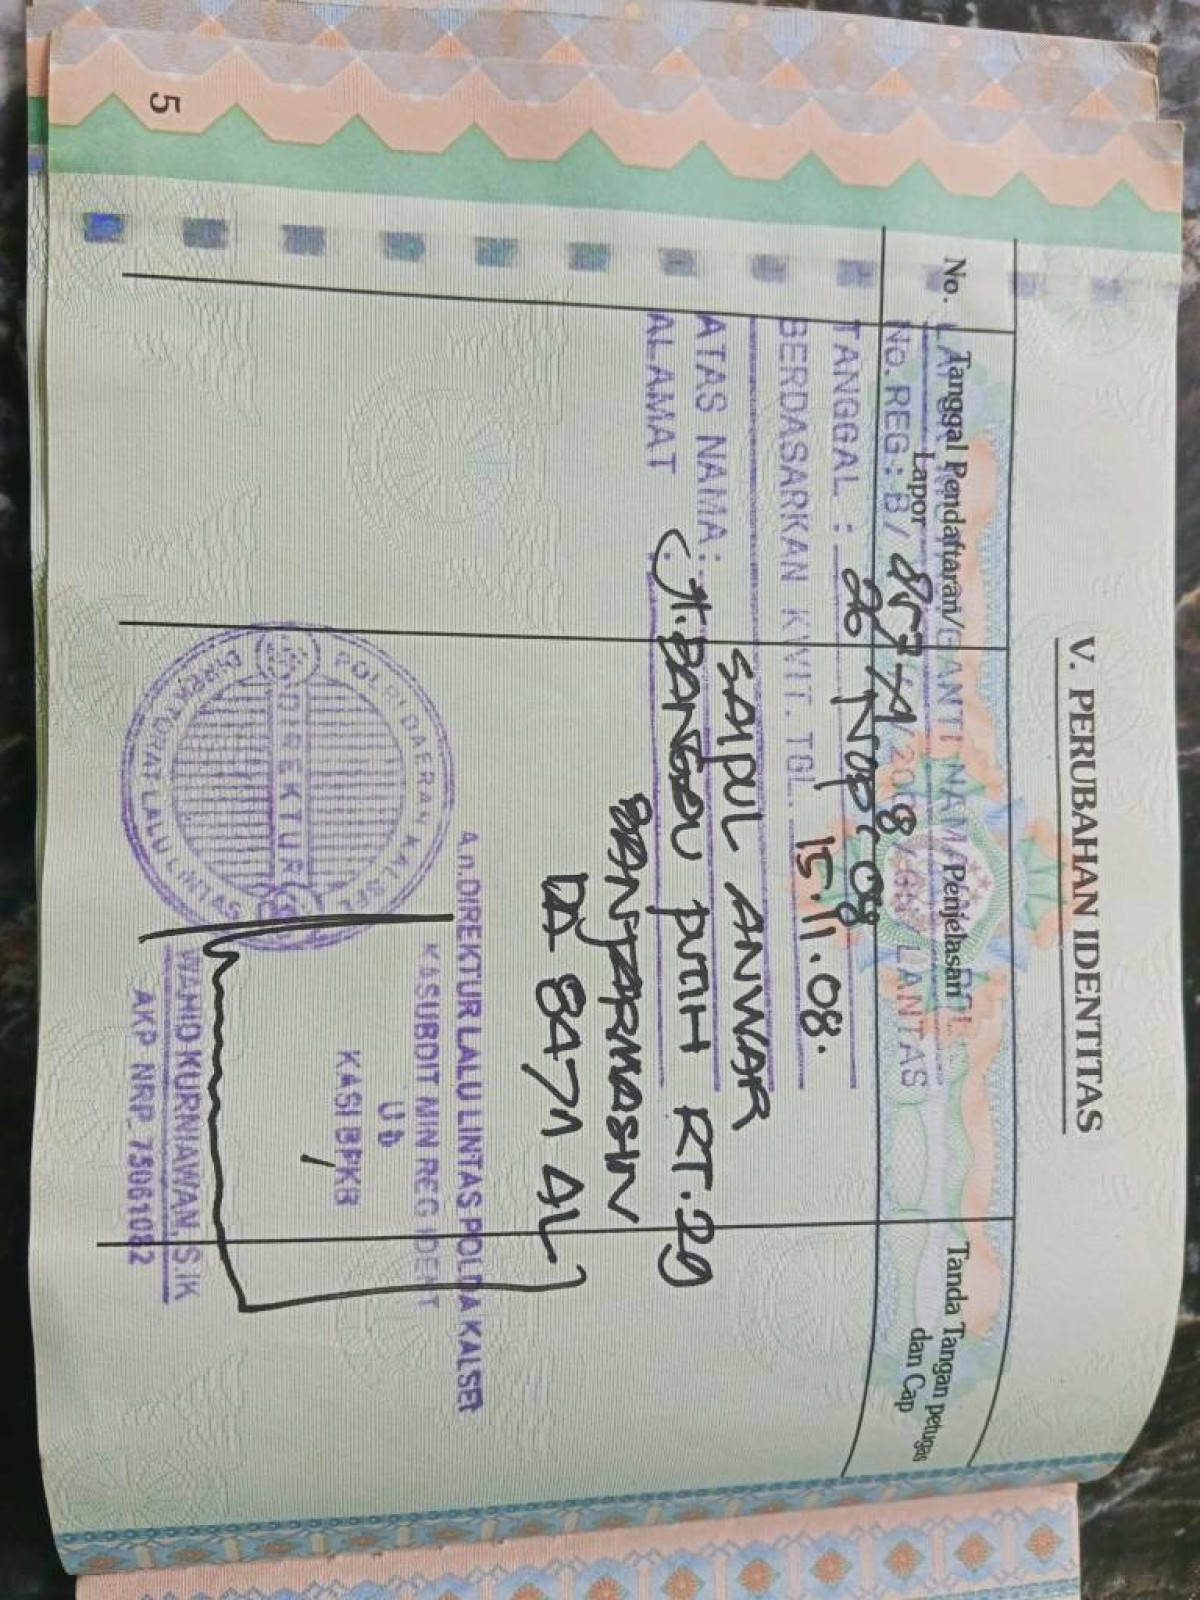 V. PERUBAHAN IDENTITAS
No.
Tanggal Pendaftaran/
Lapor
Penjelasan
Tanda Tangan petugas
dan Cap
GANTI NAMA
No. REG : B / 8577A/2008/ LANTAS
TANGGAL : 26 Nop' 08
BERDASARKAN KWIT. TGL. 15.11.08.
SAIPUL ANWAR
ATAS NAMA :
ALAMAT : Jl. BANGAU PUTIH RT.29
BANJARMASIN
DA 8471 AL
A.n.DIREKTUR LALU LINTAS POLDA KALSEL
KASUBDIT MIN REG IDENT
Ub
KASI BPKB
POLRI DAERAH KALSEL
DIREKTUR
DIREKTORAT LALU LINTAS
WAHID KURNIAWAN, S.IK
AKP NRP. 75061082
5